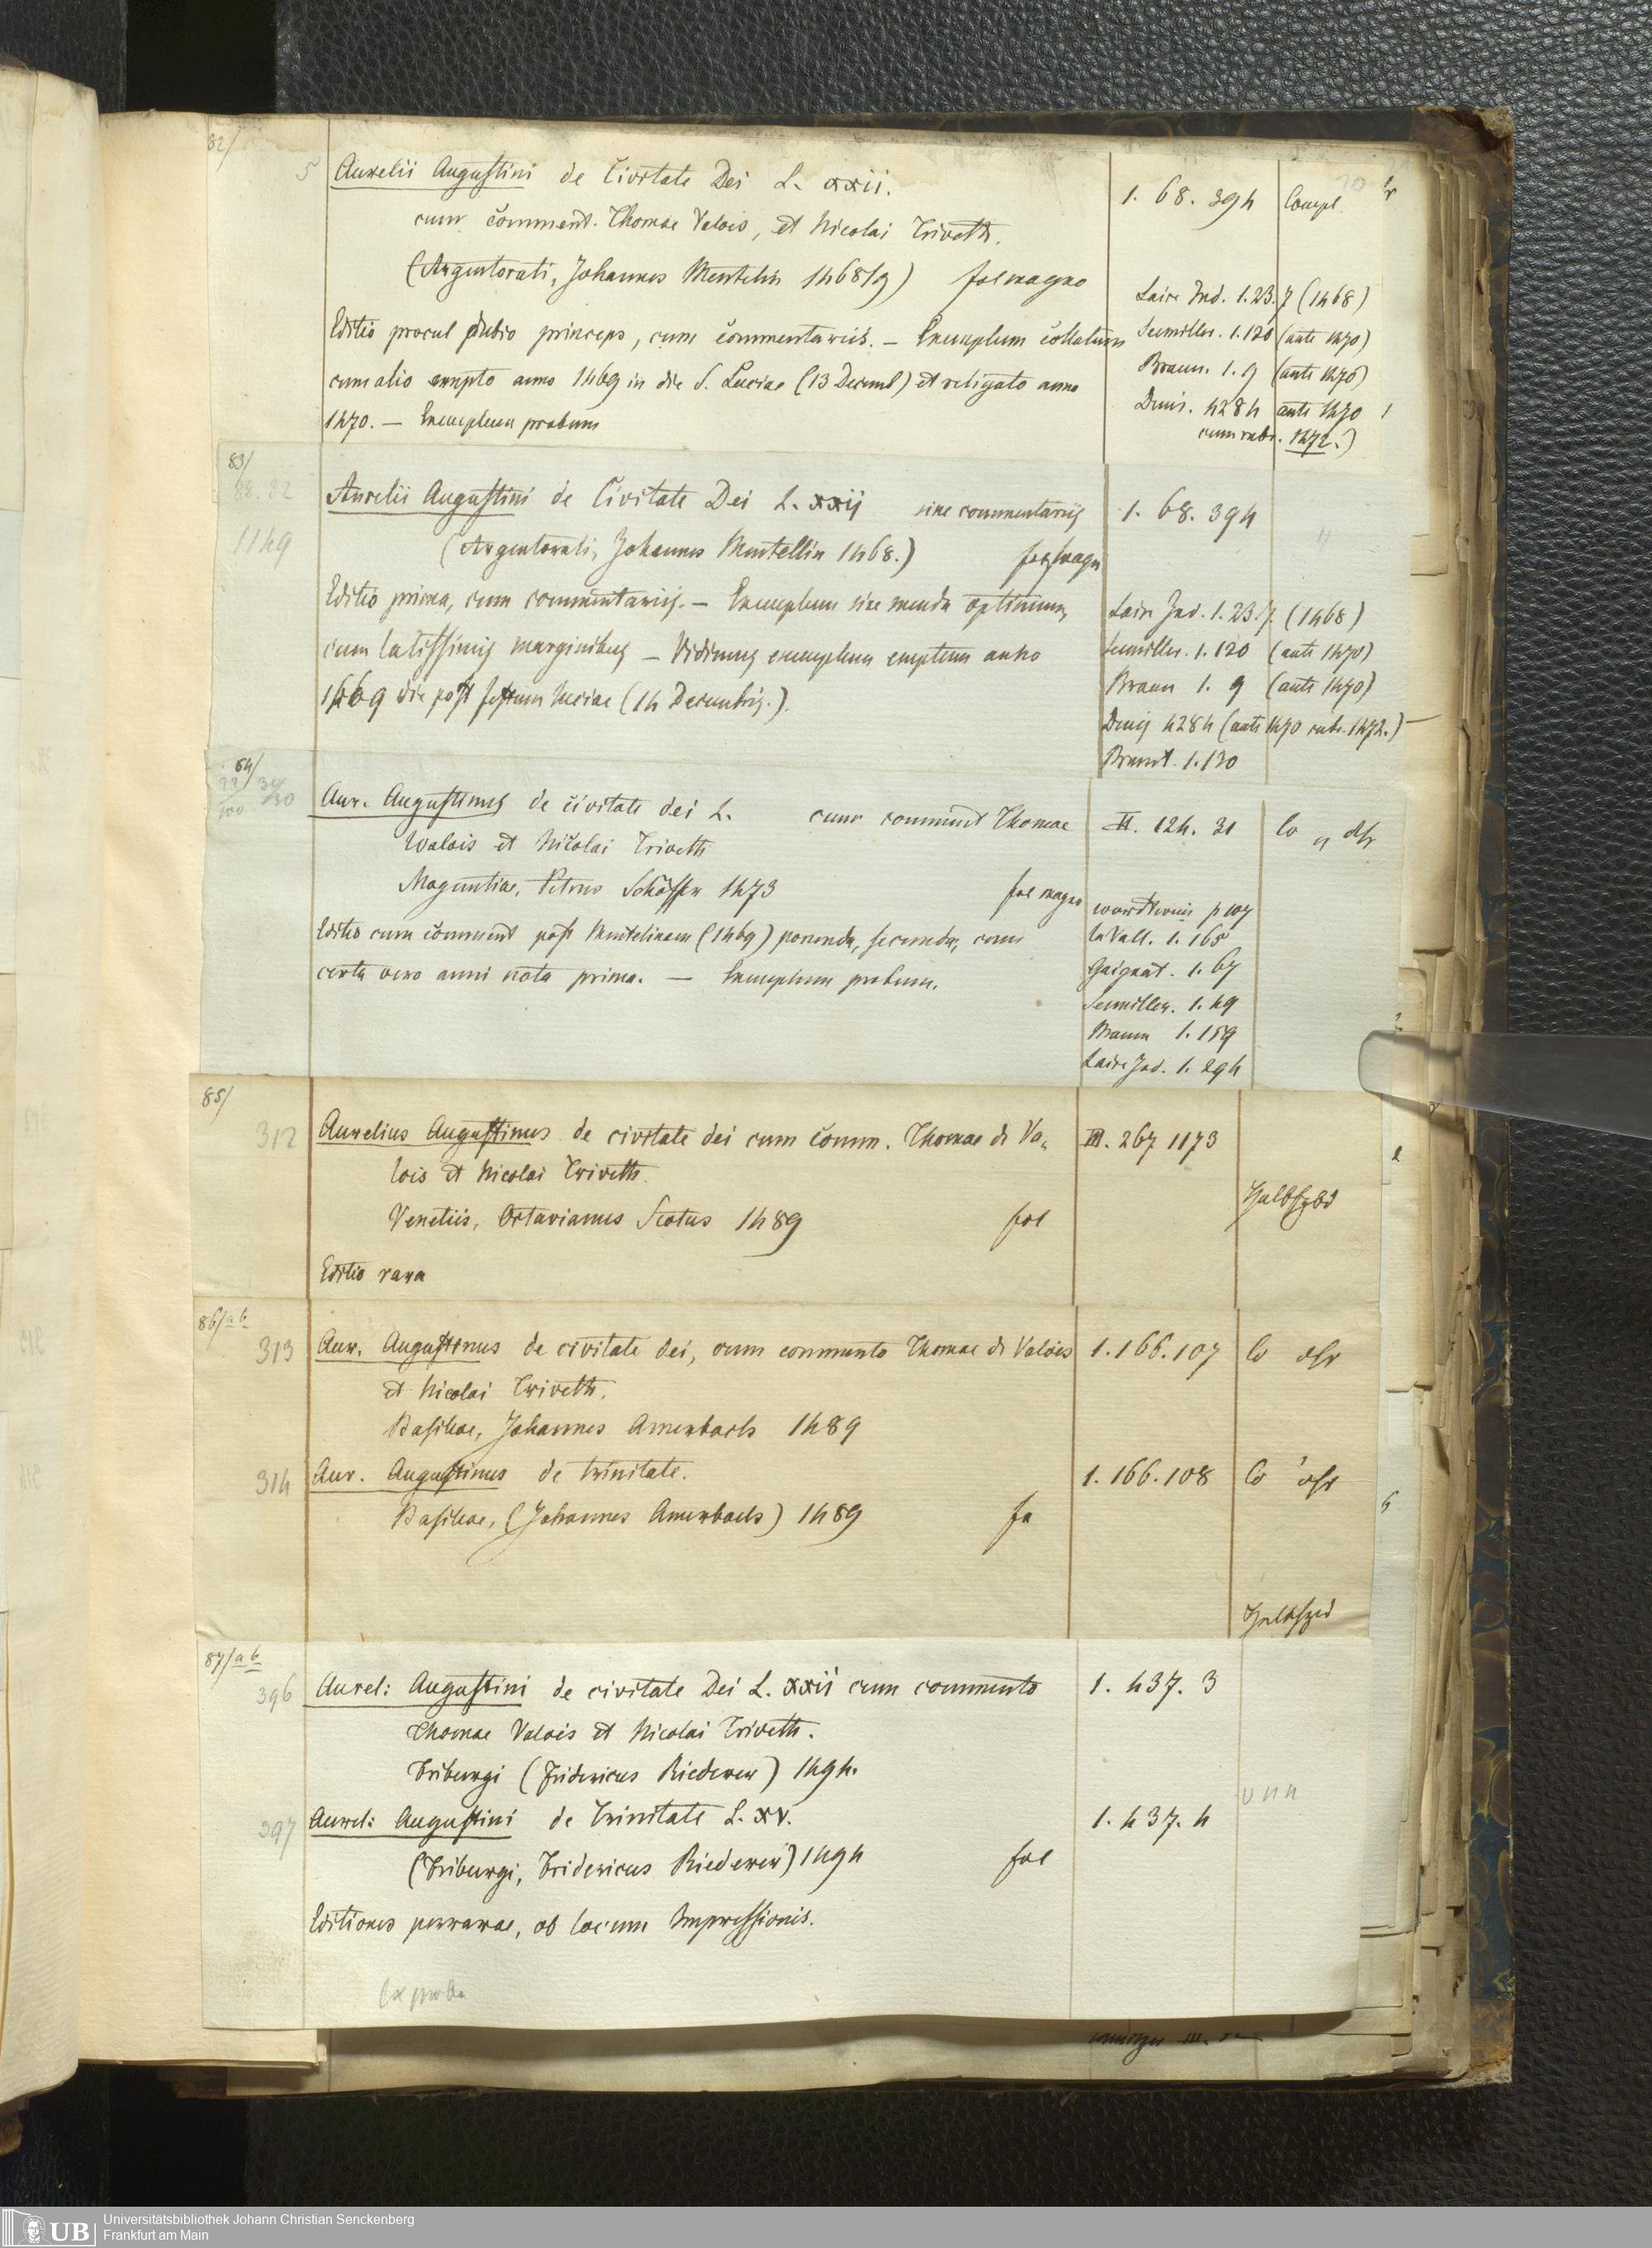 82/
5 Aurelii Augustini de Civitate Dei L. xxii. 1. 68. 394 Compl.
cum comment. Thomae Valois, et Nicolai Triveth.
(Argentorati, Johannes Mentelin 1468/9) fol magno Laire Ind. 1. 23. 7 (1468)
Editio procul dubio princeps, cum commentariis. — Exemplum collatum Seemiller. 1. 120 (ante 1470)
cum alio empto anno 1469 in die S. Luciae (13 Decemb) et religato anno Braun. 1. 9 (ante 1470)
1470. — Exemplum probum Denis. 4284 ante 1470
cum rubr. 1472.)
83/
1149
Aurelii Augustini de Civitate Dei L. xxij sine commentariis 1. 68. 394
(Argentorati, Johannes Mentellin 1468.) fol magn
Editio prima, cum commentariis. — Exemplum sine menda optimum, Laire Ind. 1. 23. 7. (1468)
cum latissimis marginibus — Vidimus exemplum emptum anno Seemiller. 1. 120 (ante 1470)
1469 die post festum Luciae (14 Decembris.). Braun 1. 9 (ante 1470)
Denis 4284 (ante 1470 rubr. 1472.)
Brunt. 1. 130
84/
Aur. Augustinus de civitate dei L. cum comment Thomae II. 124. 31 Co
Walois et Nicolai Triveth
Maguntiae, Petrus Schöffer 1473 fol magno
wurdtwein p 107
Editio cum comment post Mentelinam (1469) ponenda, secunda, cum la Vall. 1. 165
certa vero anni nota prima. — Exemplum probum. Gaignat. 1. 67
Seemiller. 1. 49
Braun 1. 159
Laire Ind. 1. 294
85/
312 Aurelius Augustinus de civitate dei cum comm. Thomae de Va- III. 267 1173
lois et Nicolai Triveth.
Venetiis, Octavianus Scotus 1489 fol
Editio rara
86/ab
313 Aur. Augustinus de civitate dei, cum commento Thomae de Valois 1. 166. 107 Co
et Nicolai Triveth.
Basileae, Johannes Amerbach 1489
314 Aur. Augustinus de trinitate. 1. 166. 108 Co
Basileae, (Johannes Amerbach) 1489 fo
87/ab
396 Aurel: Augustini de civitate Dei L. xxii cum commento 1. 437. 3
Thomae Valois et Nicolai Triveth.
Friburgi (Fridericus Riederer) 1494.
397 Aurel: Augustini de Trinitate L. xv. 1. 437. 4
(Friburgi, Fridericus Riederer) 1494 fol
Editiones perrarae, ob locum Impressionis.
UB Universitätsbibliothek Johann Christian Senckenberg
Frankfurt am Main